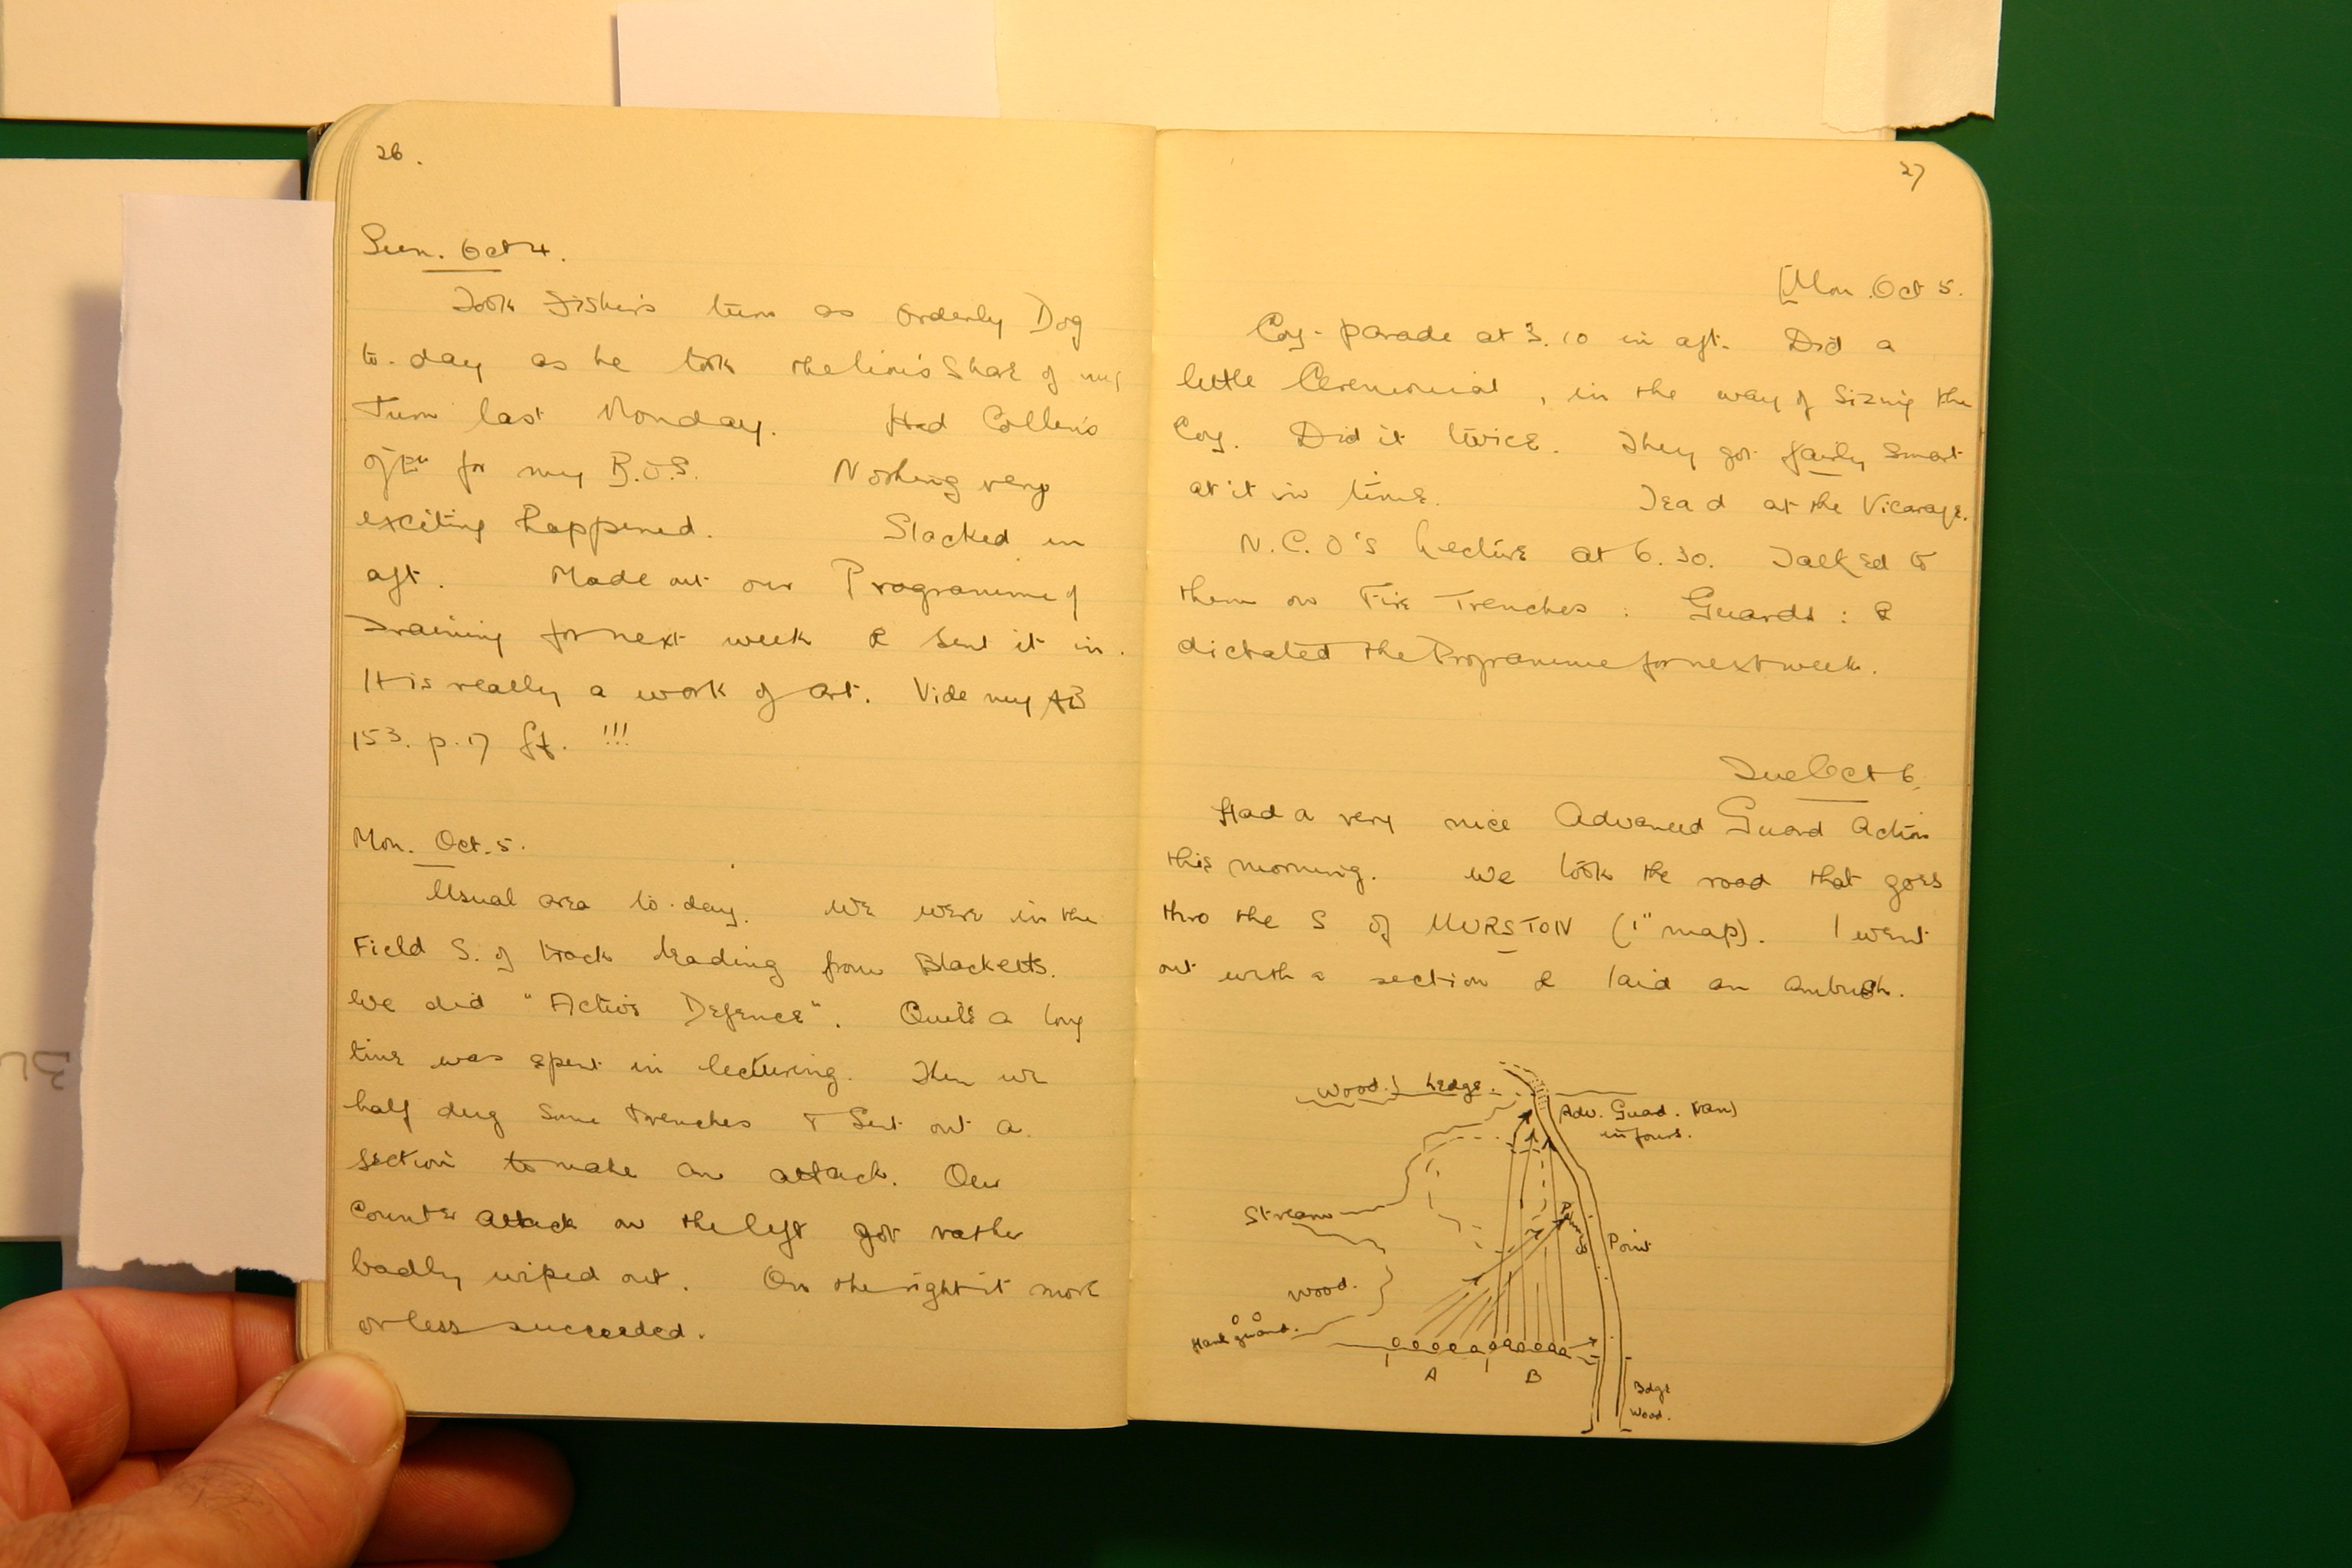 26.
Sun. Oct 4.
Took Fisher's turn as Orderly Dog
to-day as he took the lion's share of my
Turn last Monday. Had Collens
for my B.O.S. Nothing very
exciting happened. Slacked in
aft. Made out our Programme of
Training for next week & sent it in.
It is really a work of art. Vide my AB
153. p. 17 ff. !!!
Mon. Oct. 5.
Usual area to-day. We were in the
Field S. of track leading from Blacketts.
We did "Active Defence". Quite a long
time was spent in lecturing. Then we
half dug some trenches & sent out a
section to make an attack. Our
counter attack on the left got rather
badly wiped out. On the right it more
or less succeeded.
27
[Mon. Oct 5.
Coy. parade at 3.10 in aft. Did a
little Ceremonial, in the way of sizing the
Coy. Did it twice. They got fairly smart
at it in time. Tea'd at the Vicarage.
N.C.O's Lecture at 6.30. Talked to
them on Fire Trenches : Guards : &
dictated the Programme for next week.
Tue Oct 6.
Had a very nice Advanced Guard Action
this morning. We took the road that goes
thro the S of MURSTON (1" map). I went
out with a section & laid an ambush.
Wood.} hedge.
Adv. Guard. (Van)
in fours.
Stream
Point
Wood.
guard.
A B
Edge
Wood.